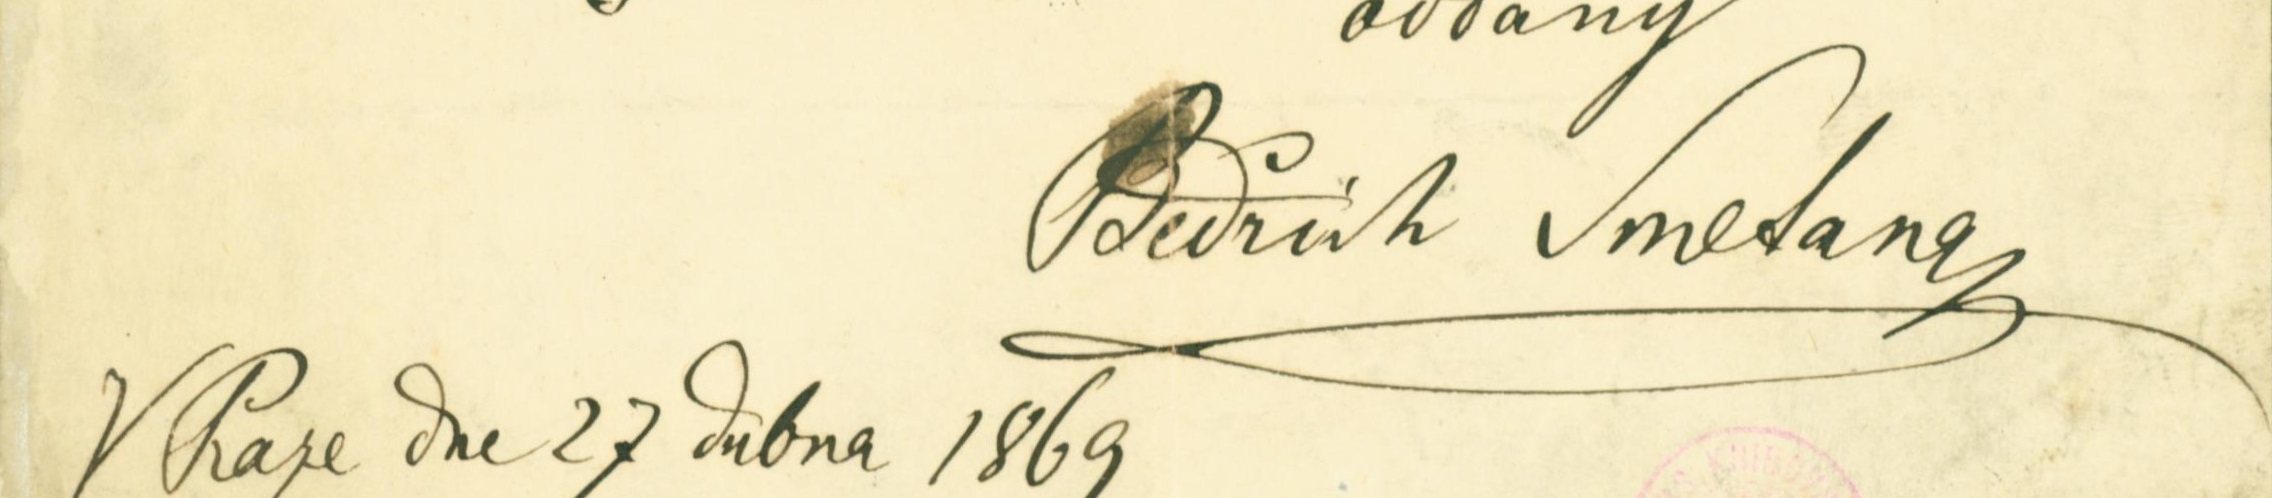 oddaný
Bedrich Smetana
V Praze dne 27 dubna 1869